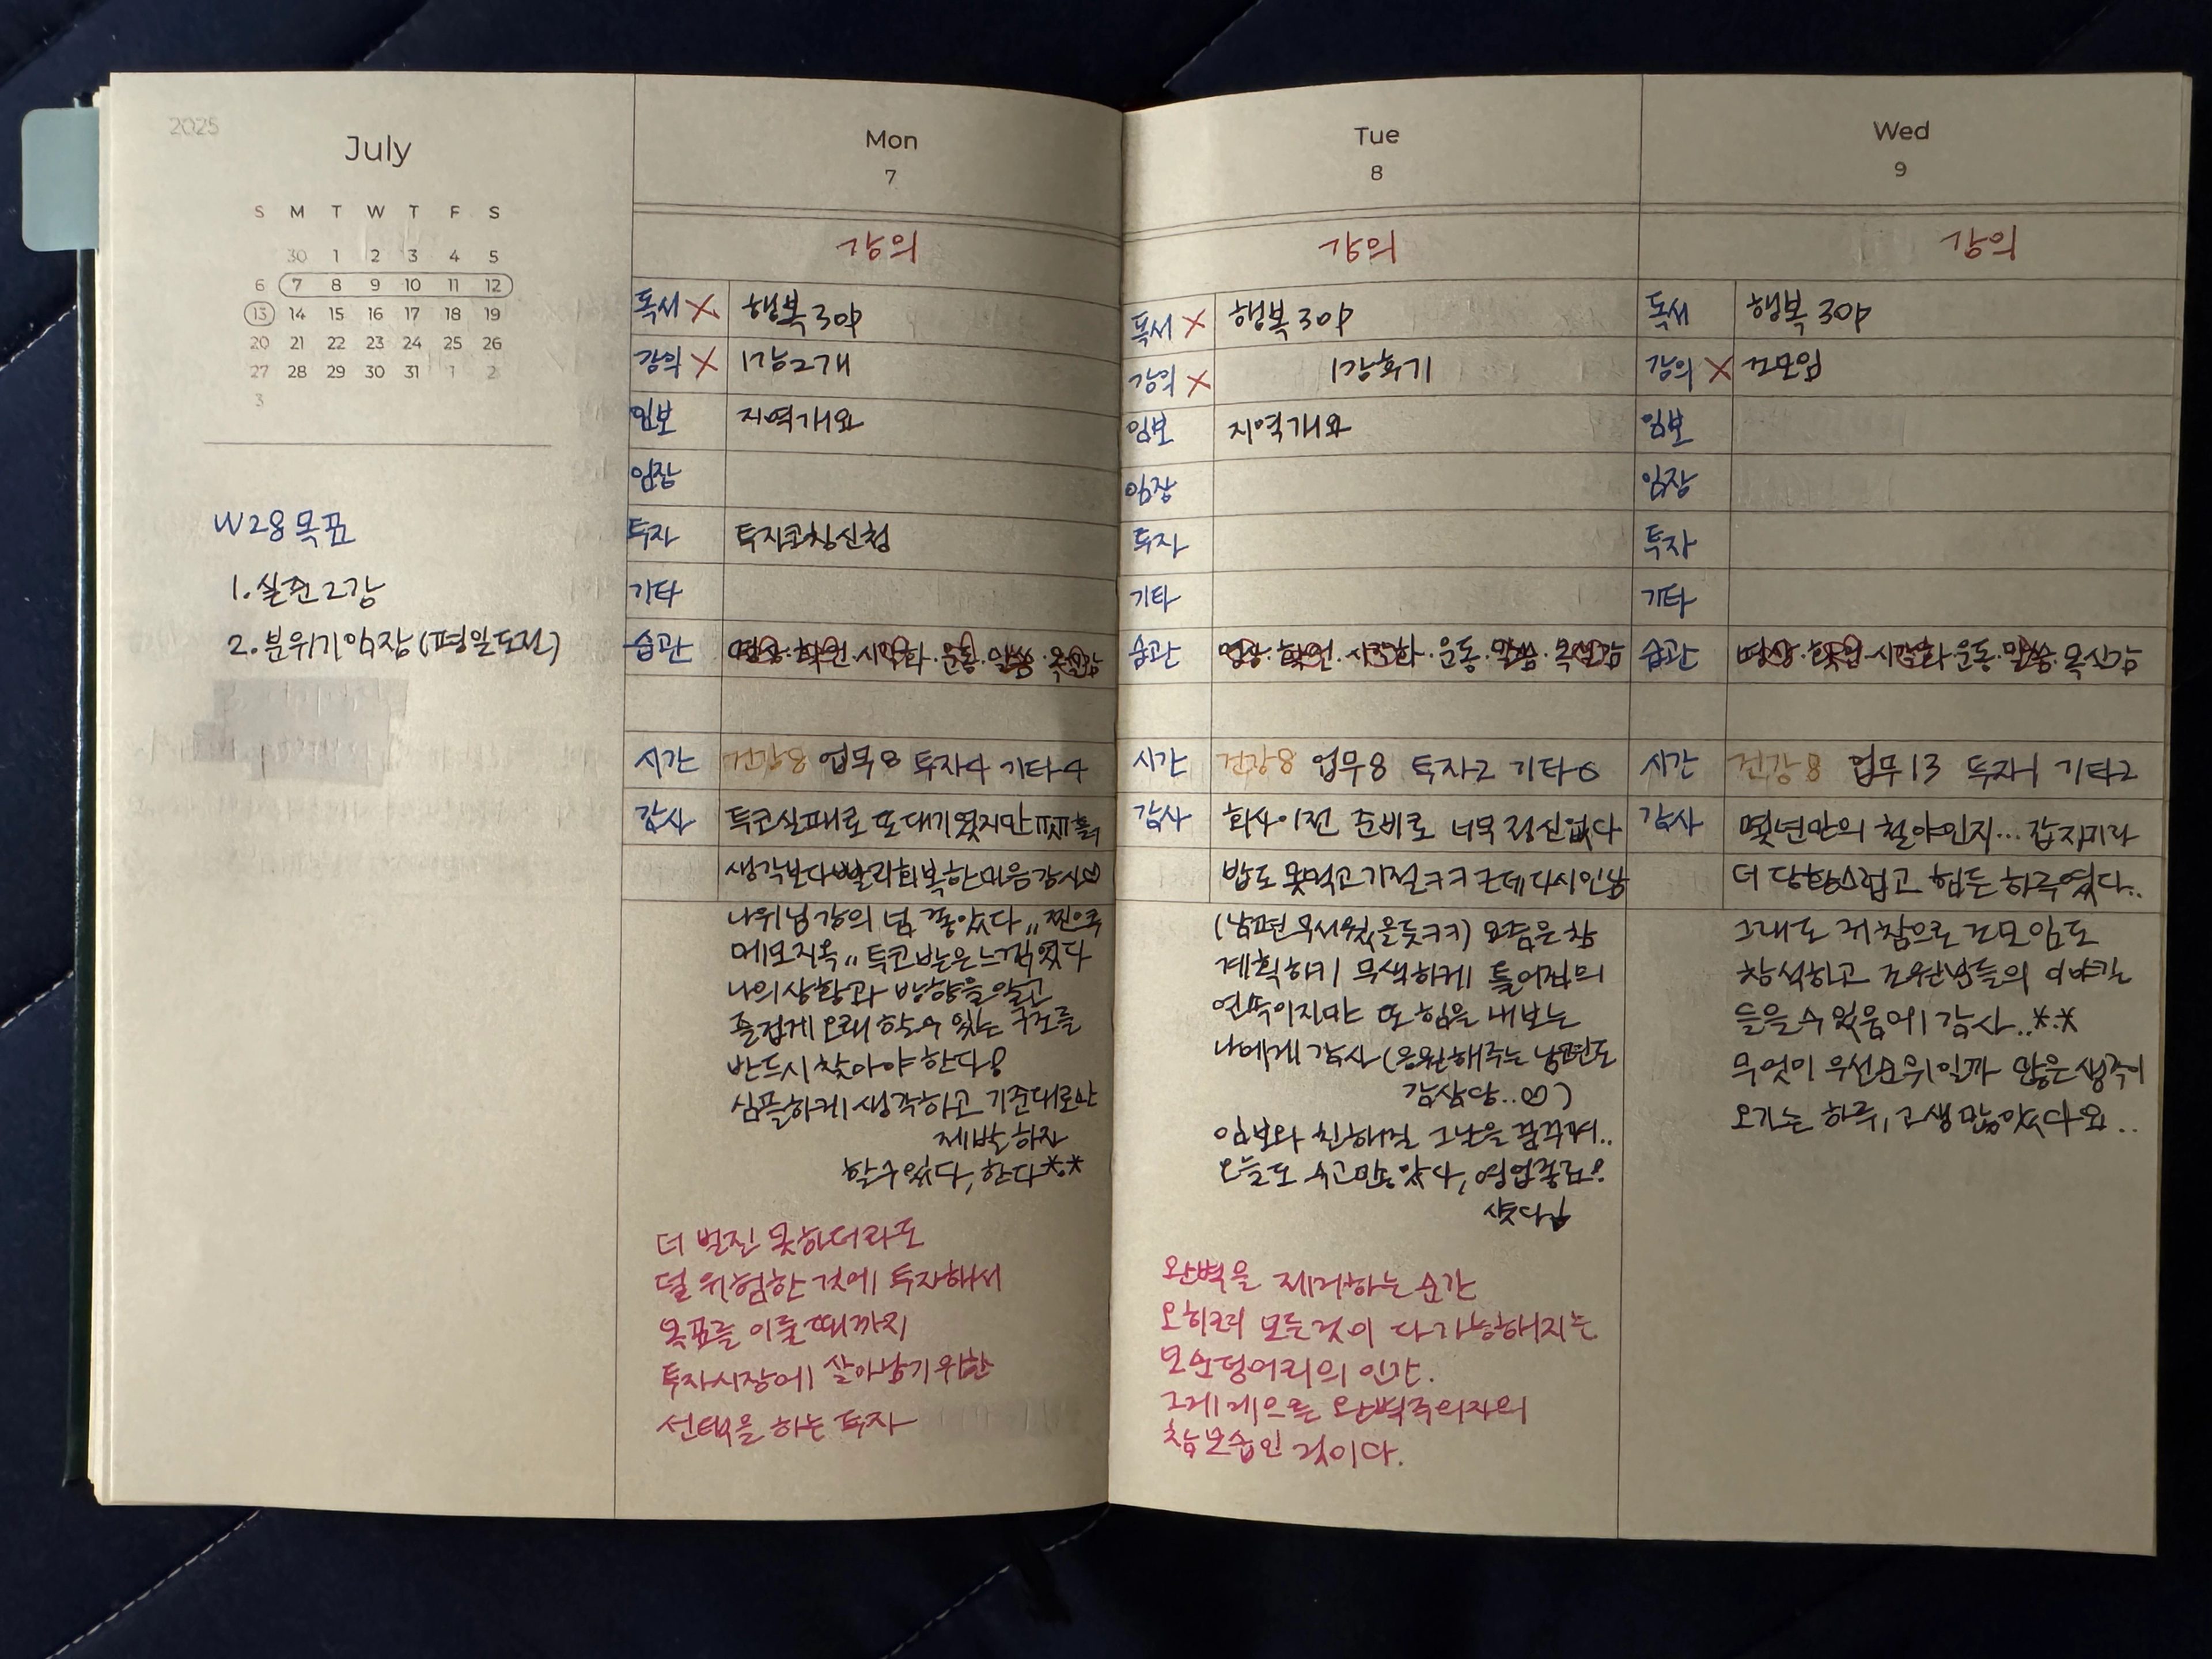 2025
July
S M T W T F S
30 1 2 3 4 5
6 7 8 9 10 11 12
13 14 15 16 17 18 19
20 21 22 23 24 25 26
27 28 29 30 31 1 2
3
W28 목표
1. 실준 2강
2. 분위기임장 (평일도전)
Mon
7
강의
독서 X 행복 30p
강의 X 1강 2개
임보 지역개요
임장
투자 투자코칭신청
기타
습관 명상·확언·시각화·운동·말씀·목실감
시간 건강8 업무8 투자4 기타4
감사 투코실패로 또 대기였지만
생각보다 빨리 회복한 마음 감사♡
나위님 강의 넘 좋았다,, 찐으로
메모지옥,, 투코받은 느낌이었다
나의 상황과 방향을 알고
즐겁게 오래 할 수 있는 구조를
반드시 찾아야 한다!
심플하게 생각하고 기준대로만
제발 하자
할 수 있다, 한다**
더 벌진 못하더라도
덜 위험한 것에 투자해서
목표를 이룰 때까지
투자시장에 살아남기 위한
선택을 하는 투자
Tue
8
강의
독서 X 행복 30p
강의 X 1강 후기
임보 지역개요
임장
투자
기타
습관 명상·확언·시각화·운동·말씀·목실감
시간 건강8 업무8 투자2 기타6
감사 회사이전 준비로 너무 정신없다
밥도 못먹고 기절ㅋㅋ 근데 다시 인남
(남편 무서웠을듯ㅋㅋ) 요즘은 참
계획하기 무색하게 틀어짐의
연속이지만 또 힘을 내보는
나에게 감사 (응원해주는 남편도
감삼당..♡)
임보와 친해질 그날을 꿈꾸며..
오늘도 수고많았다, 영업종료!
샷다남
완벽을 제거하는 순간
오히려 모든것이 다 가능해지는
모순덩어리의 인간.
그게 게으른 완벽주의자의
참모습인 것이다.
Wed
9
강의
독서 행복 30p
강의 X 조모임
임보
임장
투자
기타
습관 명상·확언·시각화·운동·말씀·목실감
시간 건강8 업무13 투자1 기타2
감사 몇년만의 철야인지... 갑자기라
더 당황스럽고 힘든 하루였다..
그래도 조모임도
참석하고 조원분들의 이야기를
들을 수 있음에 감사..**
무엇이 우선순위일까 많은 생각이
오가는 하루, 고생 많았다요..